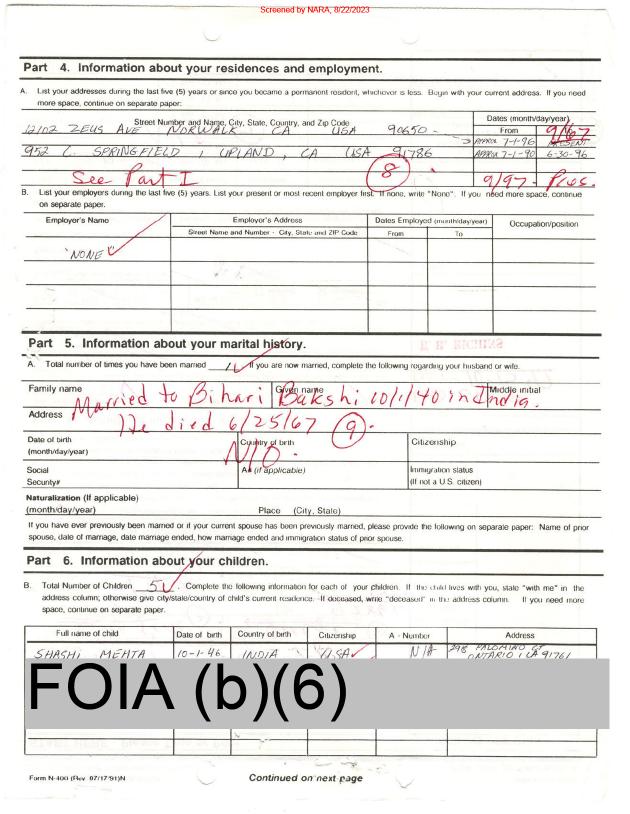 Screened by NARA, 8/22/2023
Part 4. Information about your residences and employment.
A. List your addresses during the last five (5) years or since you became a permanent resident, whichever is less. Begin with your current address. If you need
more space, continue on separate paper:
Street Number and Name, City, State, Country, and Zip Code
Dates (month/day/year)
From
9/67
12102 ZEUS AVE NORWALK CA USA 90650
APPROX 7-1-96 PRESENT
952 C. SPRINGFIELD, UPLAND, CA USA 91786
APPROX 7-1-90 6-30-96
See Part I
8
9/97 - Pres.
B. List your employers during the last five (5) years. List your present or most recent employer first. If none, write "None". If you need more space, continue
on separate paper.
Employer's Name
Employer's Address
Dates Employed (month/day/year)
Occupation/position
Street Name and Number - City, State and ZIP Code
From
To
"NONE"
Part 5. Information about your marital history.
A. Total number of times you have been married 1 If you are now married, complete the following regarding your husband or wife.
Family name
Given name
Middle initial
Married to Bihari Bakshi 10/1/40 in India.
Address
He died 6/25/67 9.
Date of birth
(month/day/year)
Country of birth
Citizenship
Social
Security#
A# (if applicable)
Immigration status
(If not a U.S. citizen)
Naturalization (If applicable)
(month/day/year)
Place (City, State)
If you have ever previously been married or if your current spouse has been previously married, please provide the following on separate paper: Name of prior
spouse, date of marriage, date marriage ended, how marriage ended and immigration status of prior spouse.
Part 6. Information about your children.
B. Total Number of Children 5. Complete the following information for each of your children. If the child lives with you, state "with me" in the
address column; otherwise give city/state/country of child's current residence. If deceased, write "deceased" in the address column. If you need more
space, continue on separate paper.
Full name of child
Date of birth
Country of birth
Citizenship
A - Number
Address
SHASHI MEHTA 10-1-46 INDIA USA N/A 298 PALOMINO CT
ONTARIO, CA 91761
FOIA (b)(6)
Form N-400 (Rev 07/17/91)N
Continued on next page